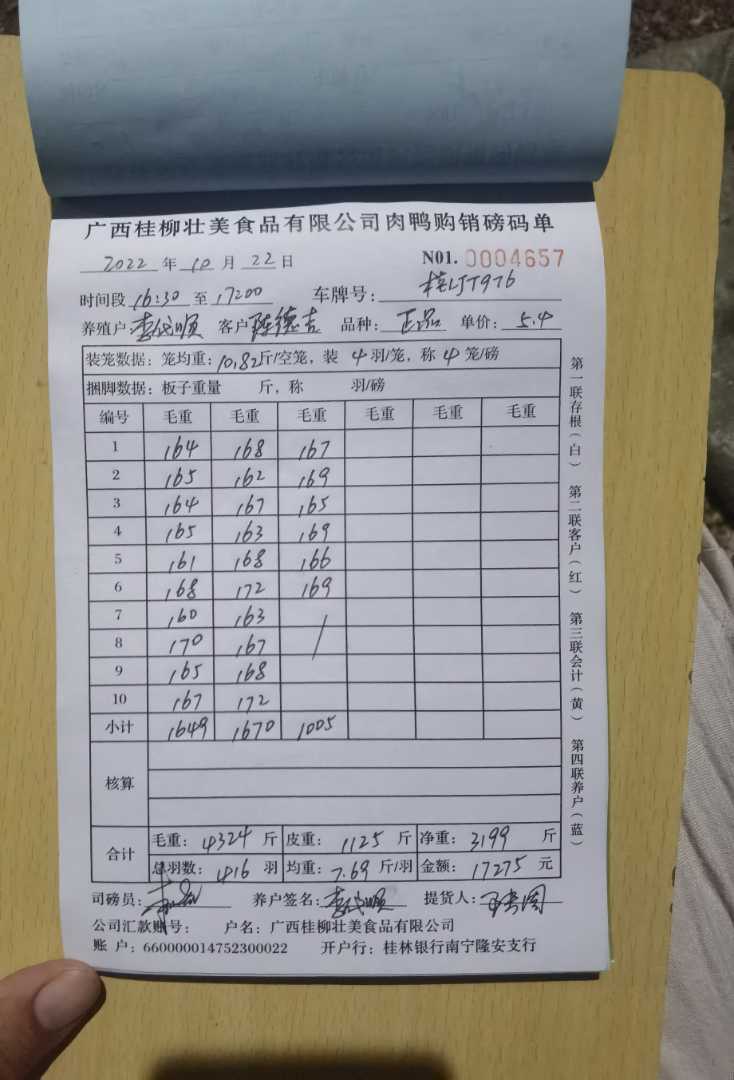 广西桂柳壮美食品有限公司肉鸭购销磅码单
2022 年 10 月 22 日 N01. 0004657
时间段 16:30 至 17200 车牌号: 桂LJT976
养殖户 李代顺 客户 陆德吉 品种: 正品 单价: 5.4
装笼数据: 笼均重: 10.82斤/空笼, 装 4 羽/笼, 称 4 笼/磅
捆脚数据: 板子重量 斤, 称 羽/磅
编号 毛重 毛重 毛重 毛重 毛重 毛重
1 164 168 167
2 165 162 169
3 164 167 165
4 165 163 169
5 161 168 166
6 168 172 169
7 160 163
8 170 167 /
9 165 168
10 167 172
小计 1649 1670 1005
核算
合计
毛重: 4324 斤 皮重: 1125 斤 净重: 3199 斤
总羽数: 416 羽 均重: 7.69 斤/羽 金额: 17275 元
司磅员: 养户签名: 李代顺 提货人:
公司汇款账号: 户名: 广西桂柳壮美食品有限公司
账 户: 660000014752300022 开户行: 桂林银行南宁隆安支行
第一联存根(白) 第二联客户(红) 第三联会计(黄) 第四联养户(蓝)